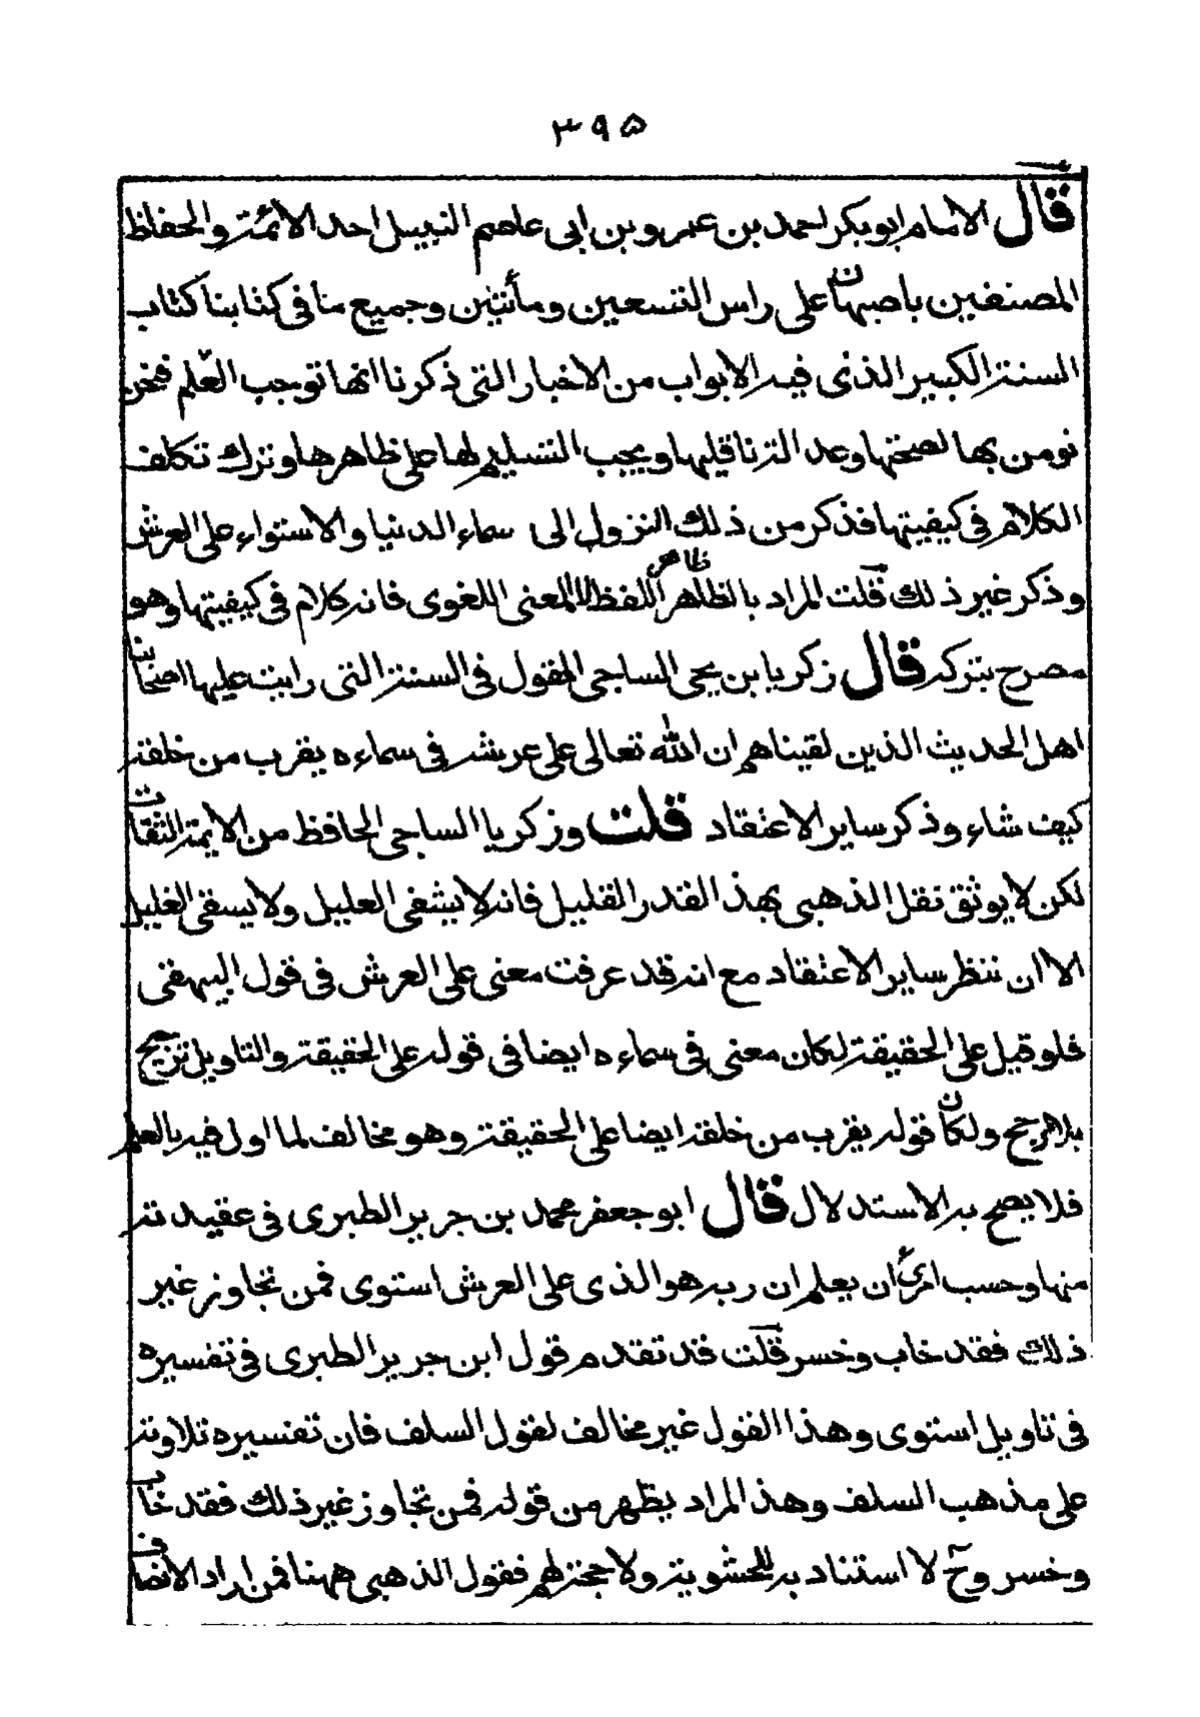 ۳۹۵
قال الامام ابو بكر احمد بن عمرو بن ابى عاصم النبيل احد الائمة والحفاظ
المصنفين باصبهان على راس التسعين ومأتين وجميع ما فى كتابنا كتاب
السنة الكبير الذى فيه الابواب من الاخبار التى ذكرنا انها توجب العلم فنحن
نومن بها لصحتها وعدالة ناقليها ويجب التسليم لها على ظاهرها وترك تكلف
الكلام فى كيفيتها فذكر من ذلك النزول الى سماء الدنيا والاستواء على العرش
وذكر غير ذلك قلت المراد بالظاهر ظاهر اللفظ لا المعنى اللغوى فانه كلام فى كيفيتها وهو
مصرح بتركه قال زكريا بن يحى الساجى المقول فى السنة التى رايت عليها اصحابنا
اهل الحديث الذين لقيناهم ان الله تعالى على عرشه فى سماءه يقرب من خلقه
كيف شاء وذكر ساير الاعتقاد قلت وزكريا الساجى الحافظ من الايمة الثقات
لكن لا يوثق نقل الذهبى بهذا القدر القليل فانه لا يشفى العليل ولا يسقى الغليل
الا ان ننظر ساير الاعتقاد مع انه قد عرفت معنى على العرش فى قول البيهقى
فلو قيل على الحقيقة لكان معنى فى سماءه ايضا فى قوله على الحقيقة والتاويل ترجيح
بلا مرجح ولكان قوله يقرب من خلقه ايضا على الحقيقة وهو مخالف لما اول فيه بالعلم
فلا يصح به الاستدلال قال ابو جعفر محمد بن جرير الطبرى فى عقيدته
منها وحسب امرئ ان يعلم ان ربه هو الذى على العرش استوى فمن تجاوز غير
ذلك فقد خاب وخسر قلت قد تقدم قول ابن جرير الطبرى فى تفسيره
فى تاويل استوى وهذا القول غير مخالف لقول السلف فان تفسيره تلاوته
على مذهب السلف وهذا المراد يظهر من قوله فمن تجاوز غير ذلك فقد خاب
وخسر وح لا استناد به للحشوية ولا حجة لهم فقول الذهبى ههنا فمن اراد الانصاف